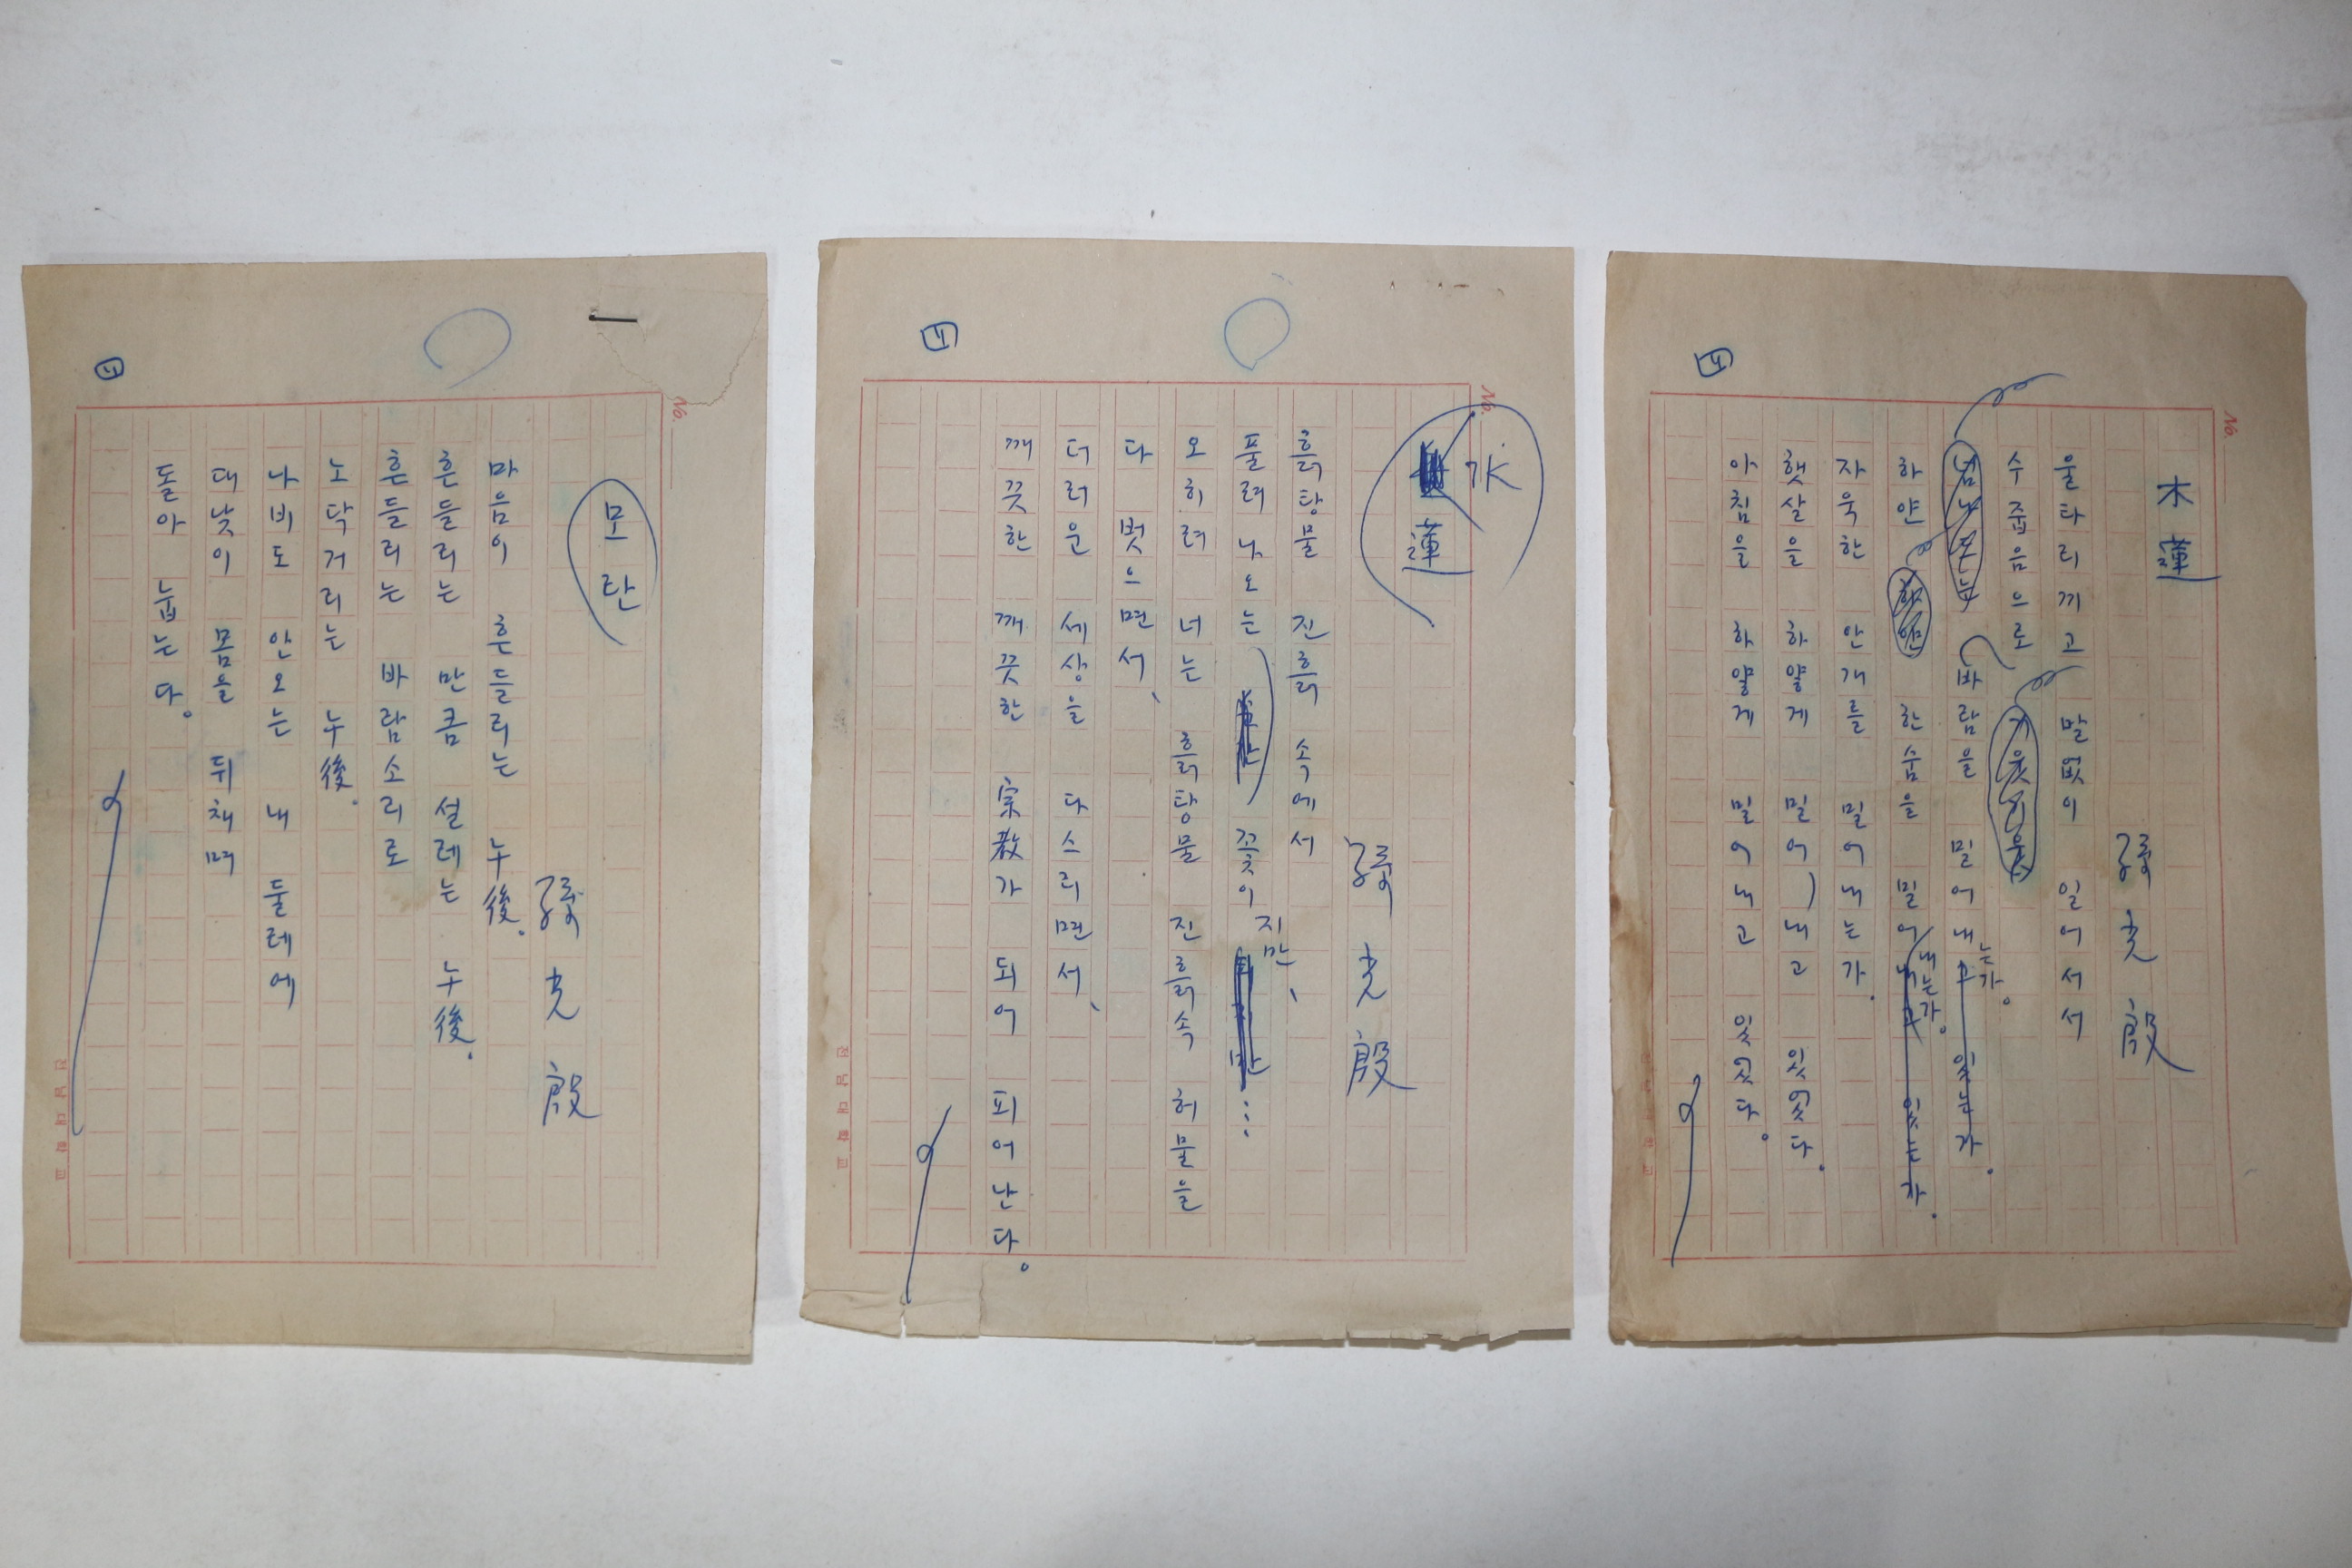 No.
木蓮
孫光殷
울타리끼고 말없이 일어서서
수줍음으로
바람을 밀어내는가.
하얀 한숨을 밀어내는가.
자욱한 안개를 밀어내는가.
햇살을 하얗게 밀어내고 있었다.
아침을 하얗게 밀어내고 있었다.
No.
水蓮
孫光殷
흙탕물 진흙 속에서
풀려 나오는 꽃이지만、
오히려 너는 흙탕물 진흙속 허물을
다 벗으면서、
더러운 세상을 다스리면서、
깨끗한 깨끗한 宗敎가 되어 피어난다。
전남대학교
No.
모란
孫光殷
마음이 흔들리는 午後.
흔들리는 만큼 설레는 午後.
흔들리는 바람소리로
노닥거리는 午後.
나비도 안오는 내 둘레에
대낮이 몸을 뒤채며
돌아 눕는다。
전남대학교